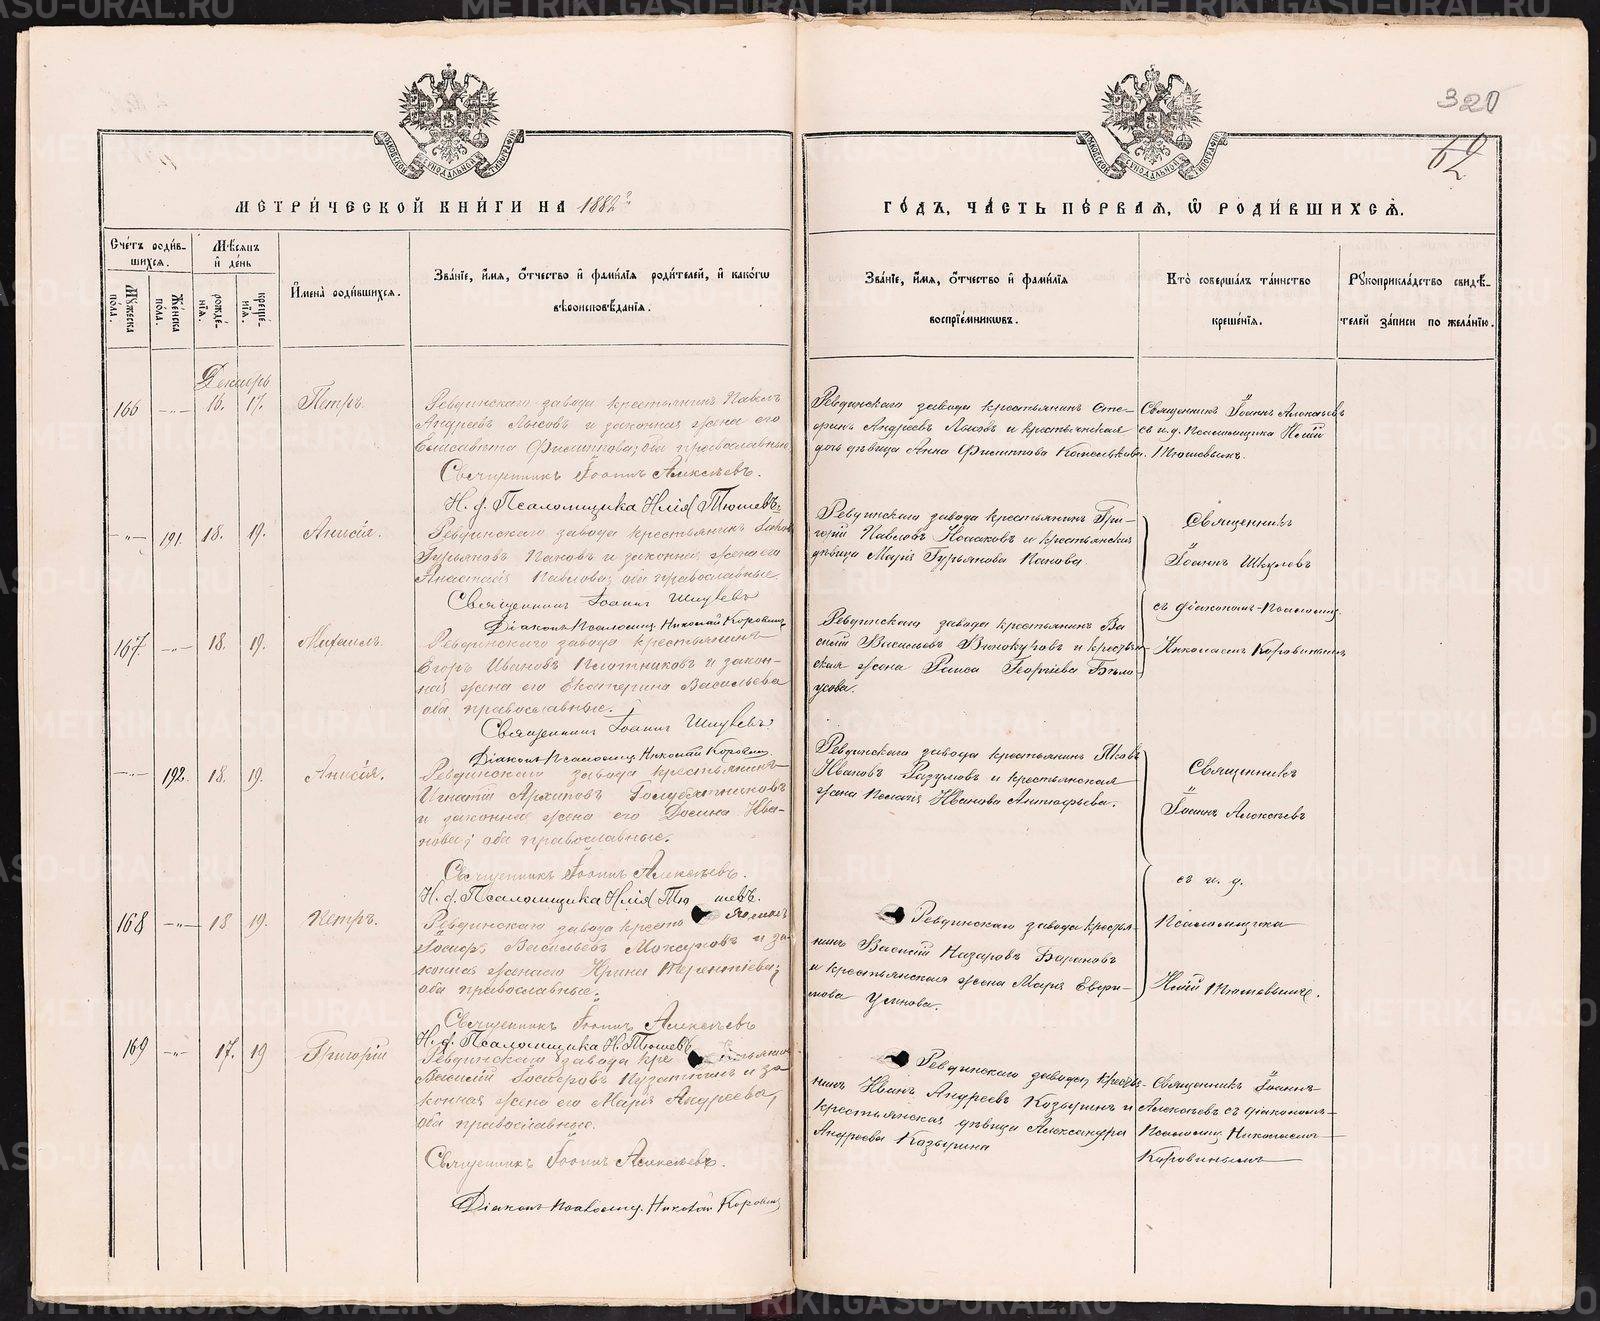 320
62
МЕТРИ́ЧЕСКОЙ КНИ́ГИ НА 1882й
ГО́ДЪ, ЧА́СТЬ ПЕ́РВАЯ, Ѽ РОДИ́ВШИХСѦ.
Сче́тъ роди́в-
шихся.
Мѣсяцъ
и де́нь
Му́жеска по́ла.
Же́нска по́ла.
рожде́нїя.
креще́нїя.
Имена̀ роди́вшихся.
Зва́нїе, и́мя, о́тчество и фами́лїя роди́телей, и како́гѡ
вѣроисповѣ́данїя.
Зва́нїе, и́мя, о́тчество и фами́лїя
воспрїе́мникѡвъ.
Кто̀ соверша́лъ та́инство
креще́нїя.
Рукоприкла́дство свидѣ́-
телей за́писи по жела́нїю.
Декабрь
166 -"- 16. 17. Петръ.
Ревдинскаго завода крестьянинъ Павелъ
Андреевъ Лысовъ и законная жена его
Елисавета Филиппова; оба православные
Священникъ Іоаннъ Алексѣевъ.
И. д. Псаломщика Илія Тюшевъ
Ревдинскаго завода крестьянинъ
Андреевъ Лысовъ и крестьянская
дочь дѣвица Анна Филиппова
Священникъ Іоаннъ Алексѣевъ
съ и. д. Псаломщика Иліей
Тюшевымъ.
-"- 191. 18. 19. Анисія.
Ревдинскаго завода крестьянинъ
Гурьяновъ Пановъ и законная жена его
Анастасія Павлова; оба православные.
Священникъ Іоаннъ Шкулевъ
Діаконъ-Псаломщ. Николай Коровинъ
Ревдинскаго завода крестьянинъ Гри-
горій Павловъ и крестьянская
дѣвица Марія Гурьянова Панова
Священникъ
Іоаннъ Шкулевъ
съ діакономъ-Псаломщ.
Николаемъ Коровинымъ
167 -"- 18. 19. Михаилъ.
Ревдинскаго завода крестьянинъ
Егоръ Ивановъ Плотниковъ и закон-
ная жена его Екатерина Васильева
оба православные.
Священникъ Іоаннъ Шкулевъ
Діаконъ-Псаломщ. Николай Коровинъ.
Ревдинскаго завода крестьянинъ Ва
силій Васильевъ Винокуровъ и крестьян-
ская жена Раиса Георгіева Бѣло
усова.
-"- 192. 18. 19. Анисія.
Ревдинскаго завода крестьянинъ
Игнатій Архиповъ Голубятниковъ
и законная жена его Ива-
нова; оба православные.
Священникъ Іоаннъ Алексѣевъ.
И. д. Псаломщика Илія Тюшевъ.
Ревдинскаго завода крестьянинъ Яковъ
Ивановъ Разумовъ и крестьянская
жена Пелагія Иванова
Священникъ
Іоаннъ Алексѣевъ
съ и. д.
Псаломщика
Иліей Тюшевымъ.
168 -"- 18 19. Петръ.
Ревдинскаго завода крестьянинъ
Іосифъ Васильевъ Мокрецовъ и за-
конная жена его Ирина Терентіева;
оба православные.
Священникъ Іоаннъ Алексѣевъ
И. д. Псаломщика И. Тюшевъ
Ревдинскаго завода крестья-
нинъ Василій Назаровъ Барановъ
и крестьянская жена Марія Евфи-
мова Усинова.
169 -"- 17. 19 Григорій
Ревдинскаго завода крестьянинъ
Василій и за
конная жена его Марія Андреева,
оба православные.
Священникъ Іоаннъ Алексѣевъ.
Діаконъ-Псаломщ. Николай Коровинъ
Ревдинскаго завода, крестья-
нинъ Иванъ Андреевъ Козыринъ и
крестьянская дѣвица Александра
Андреева Козырина
Священникъ Іоаннъ
Алексѣевъ съ діакономъ-
Псаломщ. Николаемъ
Коровинымъ
METRIKI.GASO-URAL.RU